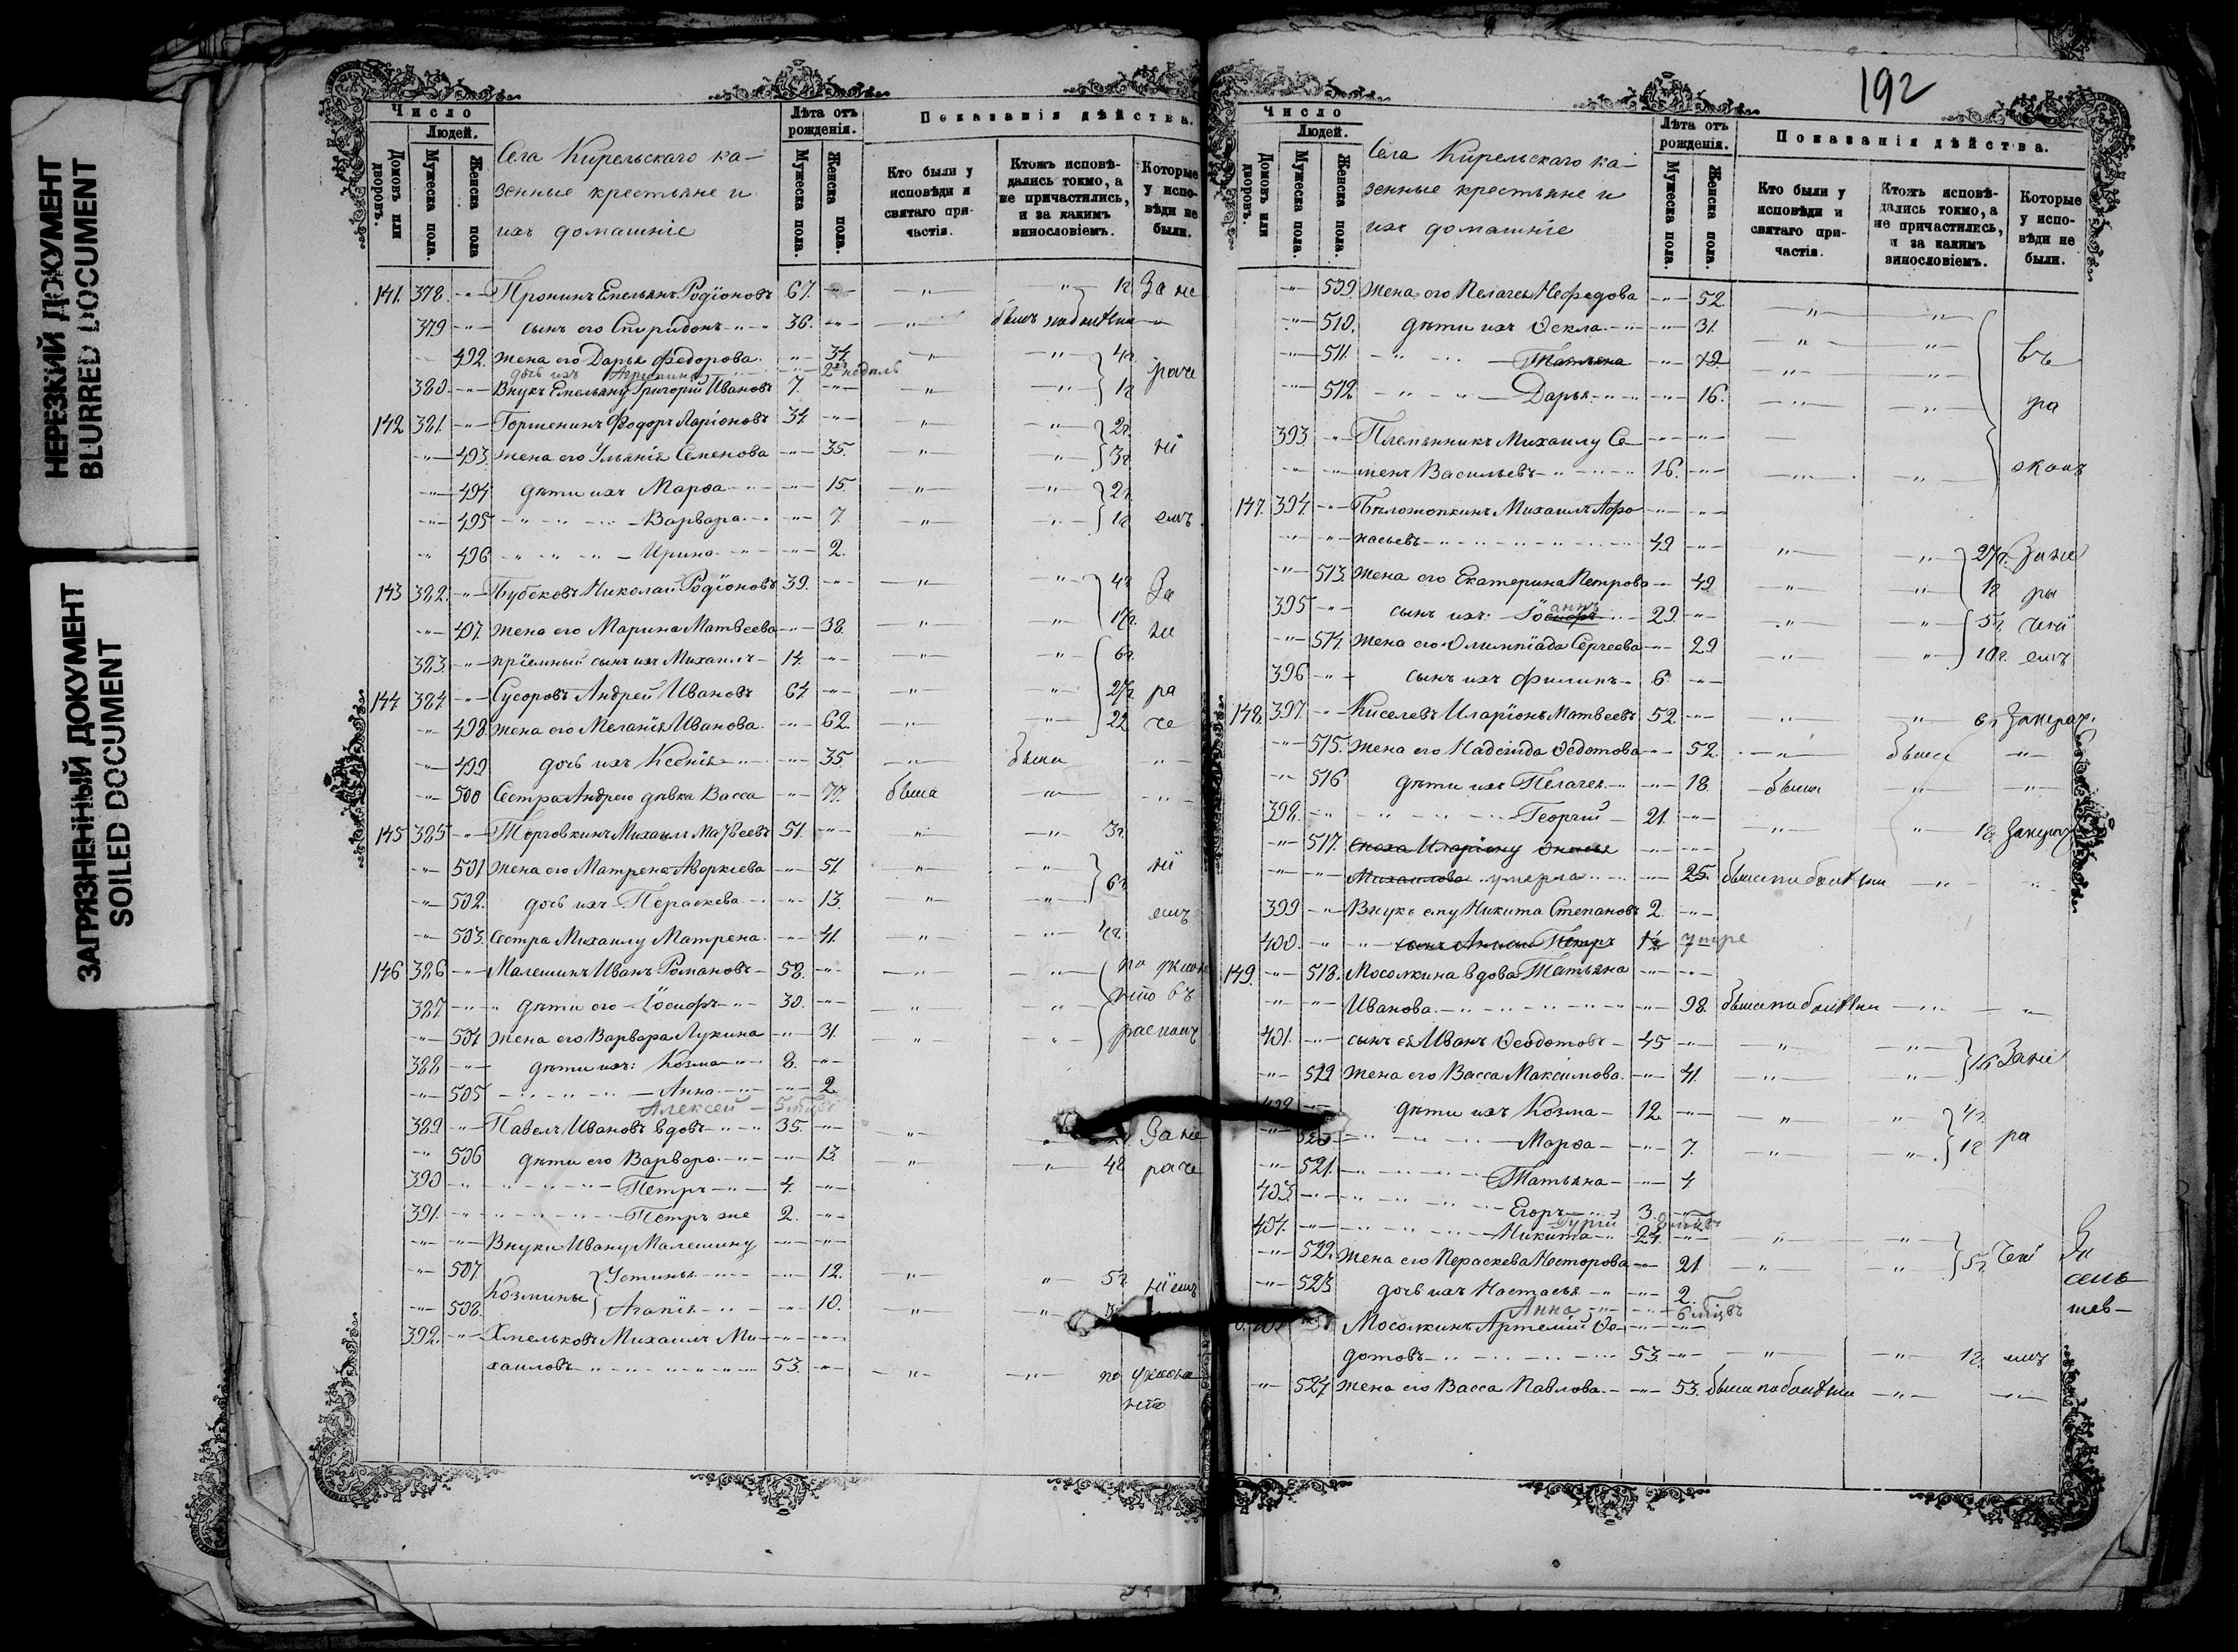 НЕРЕЗКИЙ ДОКУМЕНТ
BLURRED DOCUMENT
ЗАГРЯЗНЕННЫЙ ДОКУМЕНТ
SOILED DOCUMENT
Число
Людей.
Домовъ или дворовъ.
Мужеска пола.
Женска пола
Села Кирельскаго ка-
зенные крестьяне и
ихъ домашніе
Лѣта отъ рожденія.
Мужеска пола.
Женска пола.
Показанія дѣйства.
Кто были у исповѣди и святаго при-частія.
Ктожъ исповѣ-дались токмо, а не причастились, и за какимъ винословіемъ.
Которые у испо-вѣди не были.
141. 378. Пронинъ Емельянъ Родіоновъ 67. 1г За не
379 сынъ его Спиридонъ 36.
492. жена его Дарья Федорова 34. 4г.
дочь ихъ Агрипина 2 недѣль
380. Внукъ Емельяну Григорій Ивановъ 7 1г раче
142 381. Горшенинъ Федоръ Ларіоновъ 34 2г.
493. жена его Ульянія Семенова 35. 3г ні
494 дѣти ихъ Марѳа 15. 2г.
495 Варвара 7. 1г емъ
496 Ирина 2.
143 382. Бубековъ Николай Родіоновъ 39. 4г За
497. жена его Марина Матвѣева 38. не
383. пріемный сынъ ихъ Михаилъ 14. 6г.
144 384 Сусоровъ Андрей Ивановъ 64 ра
498. жена его Меланія Иванова 62. 22 че
499 дочь ихъ Ксенія 35 была
500 Сестра Андрею дѣвка Васса 77. была
145 385 Торговкинъ Михаилъ Матвѣевъ 51. 3г.
501 жена его Матрена Аворкіева 51 ні
502. дочь ихъ Пераскева 13. 6г. емъ
503. Сестра Михаилу Матрена 41. 4г.
146 386 Малешинъ Иванъ Романовъ 58.
387 дѣти его Іосифъ 30.
504 жена его Варвара Лукина 31.
388 дѣти ихъ: Козма 8.
505 Анна 2
Алексей 5 мѣцъ
389. Павелъ Ивановъ вдовъ 35. За не
506 дѣти его Варвара 13. 4г раче
390 Петръ 4.
391. Петръ же 2.
Внуки Ивану Малешину
507. Козмины Устинья 12. 5г ніемъ
508. Агапія 10.
392. Хмельковъ Михаилъ Ми-
хаиловъ 53.
192
Число
Людей.
Домовъ или дворовъ.
Мужеска пола.
Женска пола.
Села Кирельскаго ка-
зенные крестьяне и
ихъ домашніе
Лѣта отъ рожденія.
Мужеска пола.
Женска пола.
Показанія дѣйства.
Кто были у исповѣди и святаго при-частія.
Ктожъ исповѣ-дались токмо, а не причастились, и за какимъ винословіемъ.
Которые у испо-вѣди не были.
509. жена его Пелагея Нефедова 52.
510. дѣти ихъ Ѳекла 31.
511. Татьяна 19. въ
512 Дарья 16. ра
393 Племянникъ Михаилу Се-
менъ Васильевъ 16.
147. 394. Бѣложопкинъ Михаилъ Афо
насьевъ 49 За не
513. жена его Екатерина Петрова 49 1г ра
395 сынъ ихъ: Іосифъ анъ 29. 5г. чені
514. жена его Олимпіада Сергеева 29 10г. емъ
396 сынъ ихъ Филипъ 6.
148. 397. Киселевъ Иларіонъ Матвѣевъ 52 6г
515. жена его Надежда Ѳедотова 52. была
516 дѣти ихъ Пелагея 18. была
398. Георгій 21. 1г.
517. Сноха Иларіону
Михаилова умерла 25. была по болѣзни
399 Внукъ ему Никита Степановъ 2.
400. Петръ умре
149. 518. Мосолкина вдова Татьяна
Иванова 98. была по болѣзни
401. сынъ ея Иванъ Ѳеодотовъ 45 За не
519 жена его Васса Максимова 41.
402 дѣти ихъ Козма 12 4г
520 Марѳа 7. 1г ра
521. Татьяна 4
403. Егоръ 3.
Гурій
404. Никита 24.
522. жена его Пераскева Несторова 21 5г чені
523 дочь ихъ Настасья 2.
Анна 6 мѣцвъ
Мосолкинъ Артемій Ѳе-
дотовъ 53. 1г. емъ
524 жена его Васса Павлова 53. была по болѣзни